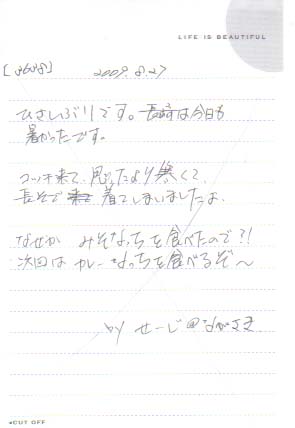 LIFE IS BEAUTIFUL
2009.8.27
ひさしぶりです。長崎は今日も
暑かったです。
コッチ来て、思ったより寒くて
長そで 着てしまいましたよ。
なぜか みそなっちを食べたので?!
次回は カレーなっちを食べるぞ〜
by せーじ@ながさき
CUT OFF